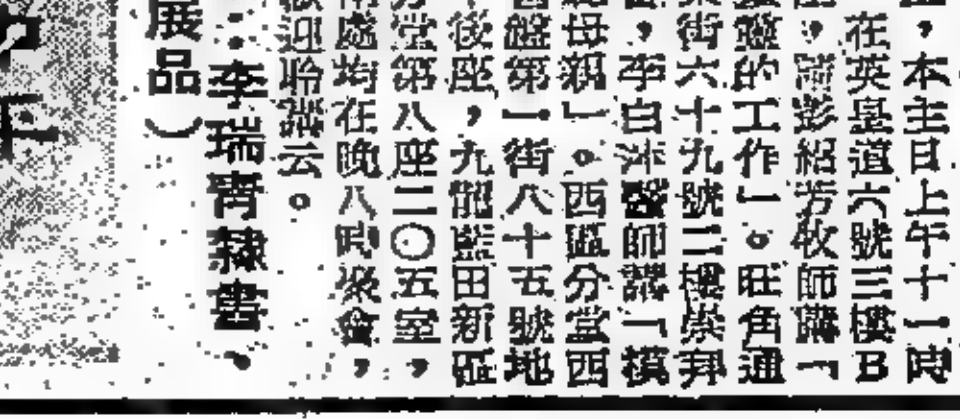 ，本主日上午十一時
在英皇道六號三樓B
，請彭紹芳牧師講「
靈的工作」。旺角通
菜街六十九號二樓崇拜
，李白沐醫師講「模
母親」。西區分堂西
營盤第一街八十五號地
後座，九龍藍田新區
分堂第八座二〇五室，
處均在晚八時聚會，
歡迎聆聽云。
李瑞靑隸書、
展品）